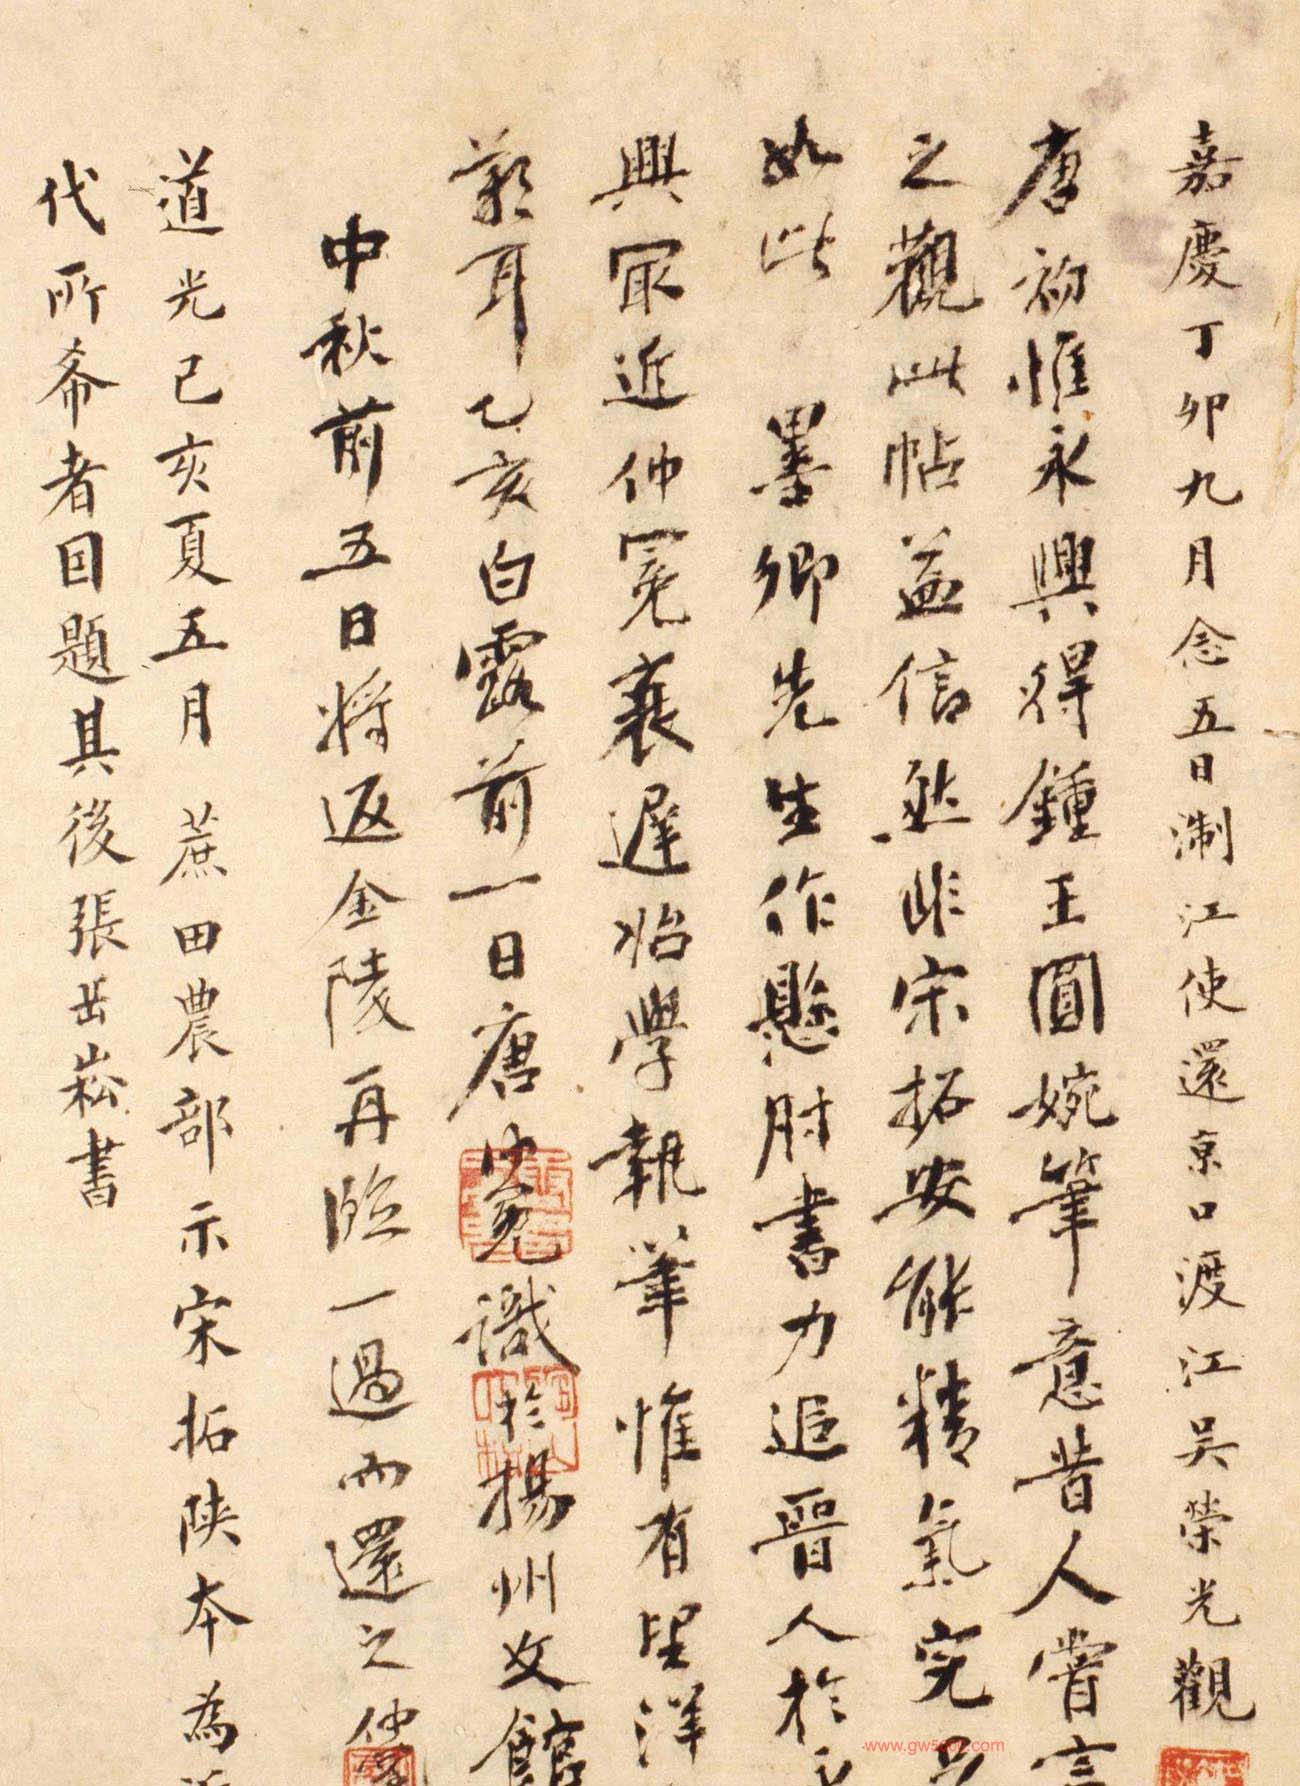 嘉慶丁卯九月念五日淛江使還京口渡江吳榮光觀
唐初惟永興得鍾王圓婉筆意昔人嘗言
之觀此帖益信然非宋拓安能精氣完
如此 墨卿先生作懸肘書力追晉人於
興冣近仲冕衰遲怡學執筆惟有望洋
歎耳乙亥白露前一日唐仲冕識於揚州文館
中秋前五日將返金陵再臨一過而還之仲冕
道光己亥夏五月 蔗田農部示宋拓陝本為
代所希者因題其後張岳崧書
www.gw5000.com